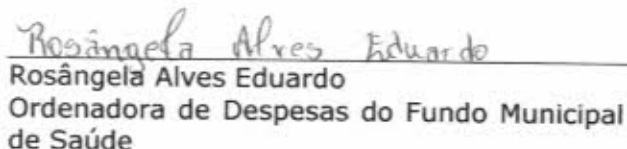 Rosângela Alves Eduardo
Rosângela Alves Eduardo
Ordenadora de Despesas do Fundo Municipal
de Saúde